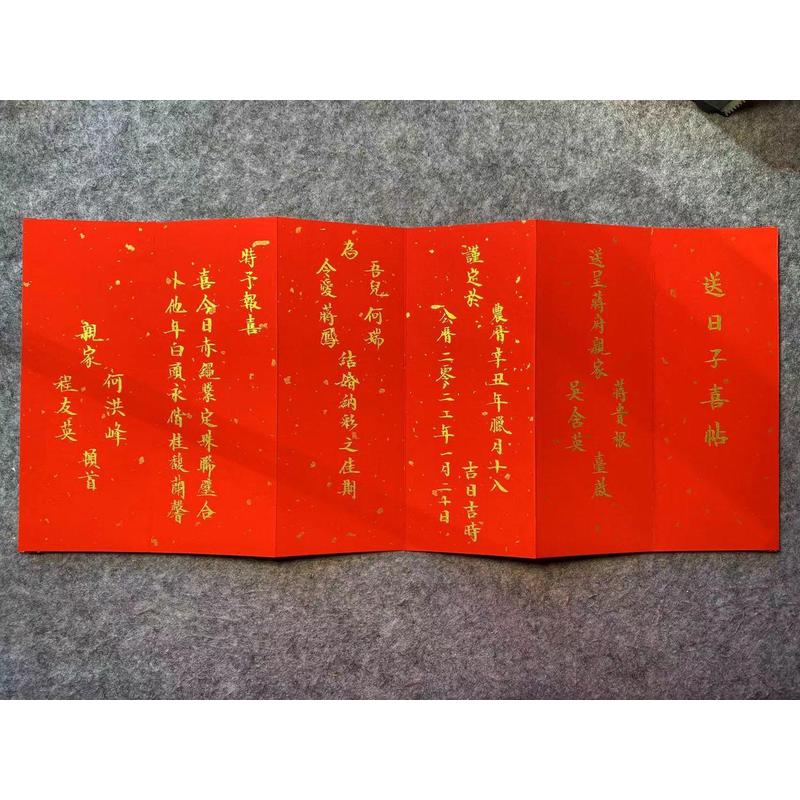 送日子喜帖
送呈蔣府親家
蔣貴根
吳含英
臺啟
謹定於
農曆辛丑年臘月十八
公曆二零二二年一月二十日
吉日吉時
為
吾兒何瑞
令愛蔣鳳
結婚納彩之佳期
特予報喜
喜今日赤繩繫定珠聯璧合
卜他年白頭永偕桂馥蘭馨
親家
何洪峰
程友英
頓首